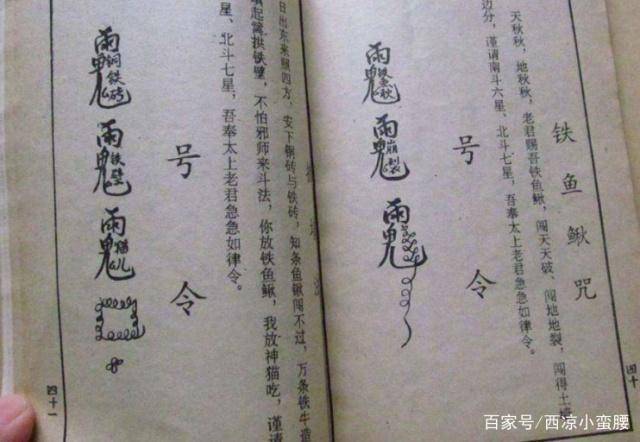 铁鱼鳅咒
天秋秋，地秋秋，老君赐吾铁鱼鳅，闯天天破，闯地地裂，闯得土
边分，谨请南斗六星、北斗七星，吾奉太上老君急急如律令。
号令
雨鬼
雨鬼崩裂
雨鬼
四十
日出东来照四方，安下钢砖与铁砖，知条鱼鳅闯不过，万条铁牛
起篱拱铁壁，不怕邪师来斗法，你放铁鱼鳅，我放神猫吃，谨请
星、北斗七星，吾奉太上老君急急如律令。
号令
雨鬼铜铁砖
雨鬼铁壁
雨鬼猫儿
四十一
百家号/西凉小蛮腰